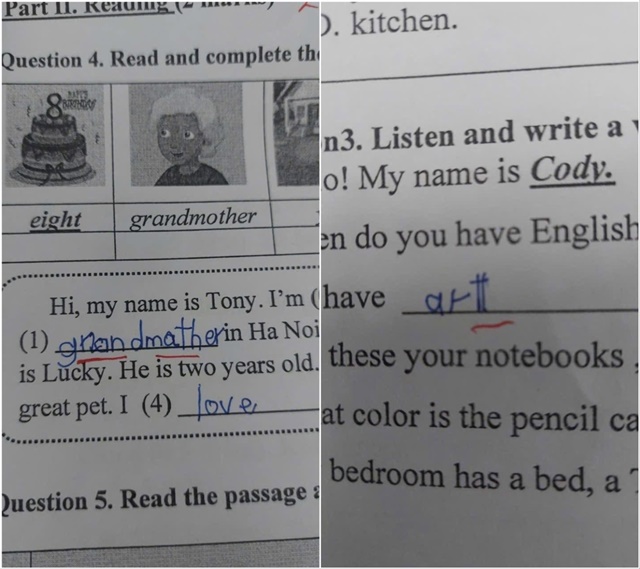 Part II. Reading (2 marks)
Question 4. Read and complete the
HAPPY
8 BIRTHDAY
eight grandmother
Hi, my name is Tony. I'm (
(1) grandmather in Ha Noi
is Lucky. He is two years old.
great pet. I (4) love
Question 5. Read the passage a
D. kitchen.
n3. Listen and write a
o! My name is Cody.
en do you have English
have artt
these your notebooks
at color is the pencil ca
bedroom has a bed, a